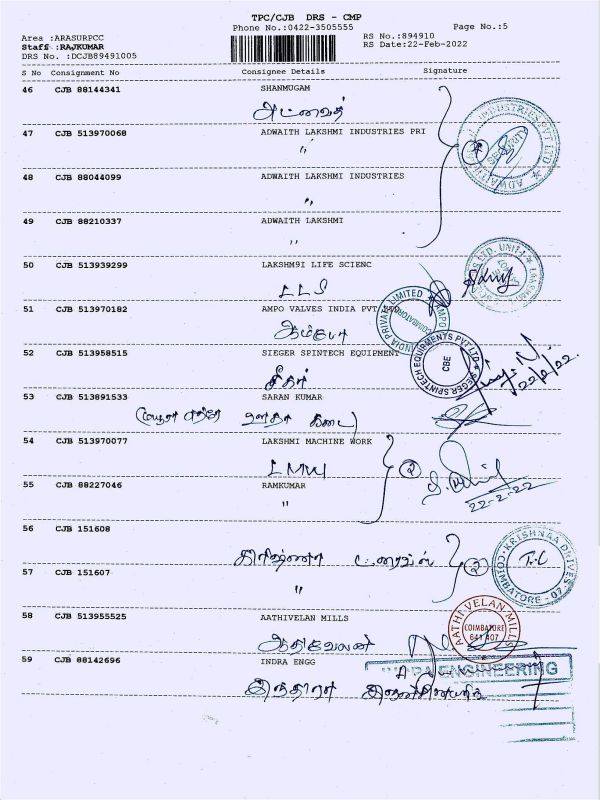 TPC/CJB DRS - CMP
Phone No.:0422-3505555 Page No.:5
Area :ARASURPCC RS No.:894910
Staff :RAJKUMAR RS Date:22-Feb-2022
DRS No. :DCJB89491005
S No Consignment No Consignee Details Signature
46 CJB 88144341 SHANMUGAM
அட்வைத்
47 CJB 513970068 ADWAITH LAKSHMI INDUSTRIES PRI
"
48 CJB 88044099 ADWAITH LAKSHMI INDUSTRIES
"
49 CJB 88210337 ADWAITH LAKSHMI
"
50 CJB 513939299 LAKSHM9I LIFE SCIENC
LLS
51 CJB 513970182 AMPO VALVES INDIA PVT
ஆம்போ
52 CJB 513958515 SIEGER SPINTECH EQUIPMENT
சீகர்
SEGER SPINTECH EQUIPMENTS PVT LTD
CBE
22/2/22
53 CJB 513891533 SARAN KUMAR
54 CJB 513970077 LAKSHMI MACHINE WORK
LMW
2
55 CJB 88227046 RAMKUMAR
"
22-2-22
56 CJB 151608
கிரிஷ்ணா டிரைவ்ஸ்
2
KRISHNAA DRIVES
COIMBATORE - 07
57 CJB 151607
"
58 CJB 513955525 AATHIVELAN MILLS
ஆதிவேலன்
AATHI-VELAN MILLS
COIMBATORE
641 407
59 CJB 88142696 INDRA ENGG
INDRA ENGINEERING